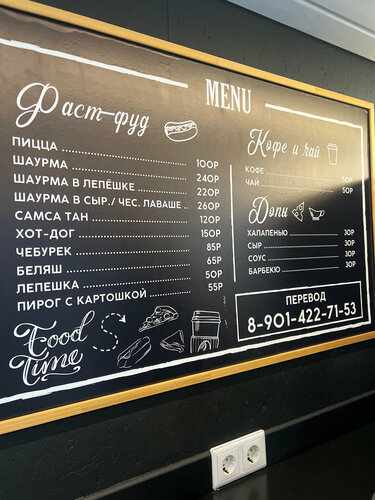 MENU
Фаст-фуд
ПИЦЦА 100Р
ШАУРМА 240Р
ШАУРМА В ЛЕПЁШКЕ 220Р
ШАУРМА В СЫР./ ЧЕС. ЛАВАШЕ 260Р
САМСА ТАН 120Р
ХОТ-ДОГ 150Р
ЧЕБУРЕК 85Р
БЕЛЯШ 65Р
ЛЕПЕШКА 50Р
ПИРОГ С КАРТОШКОЙ 55Р
Food
Time
Кофе и чай
КОФЕ
ЧАЙ 50Р
Допы
ХАЛАПЕНЬЮ 30Р
СЫР 30Р
СОУС 30Р
БАРБЕКЮ 30Р
ПЕРЕВОД
8-901-422-71-53